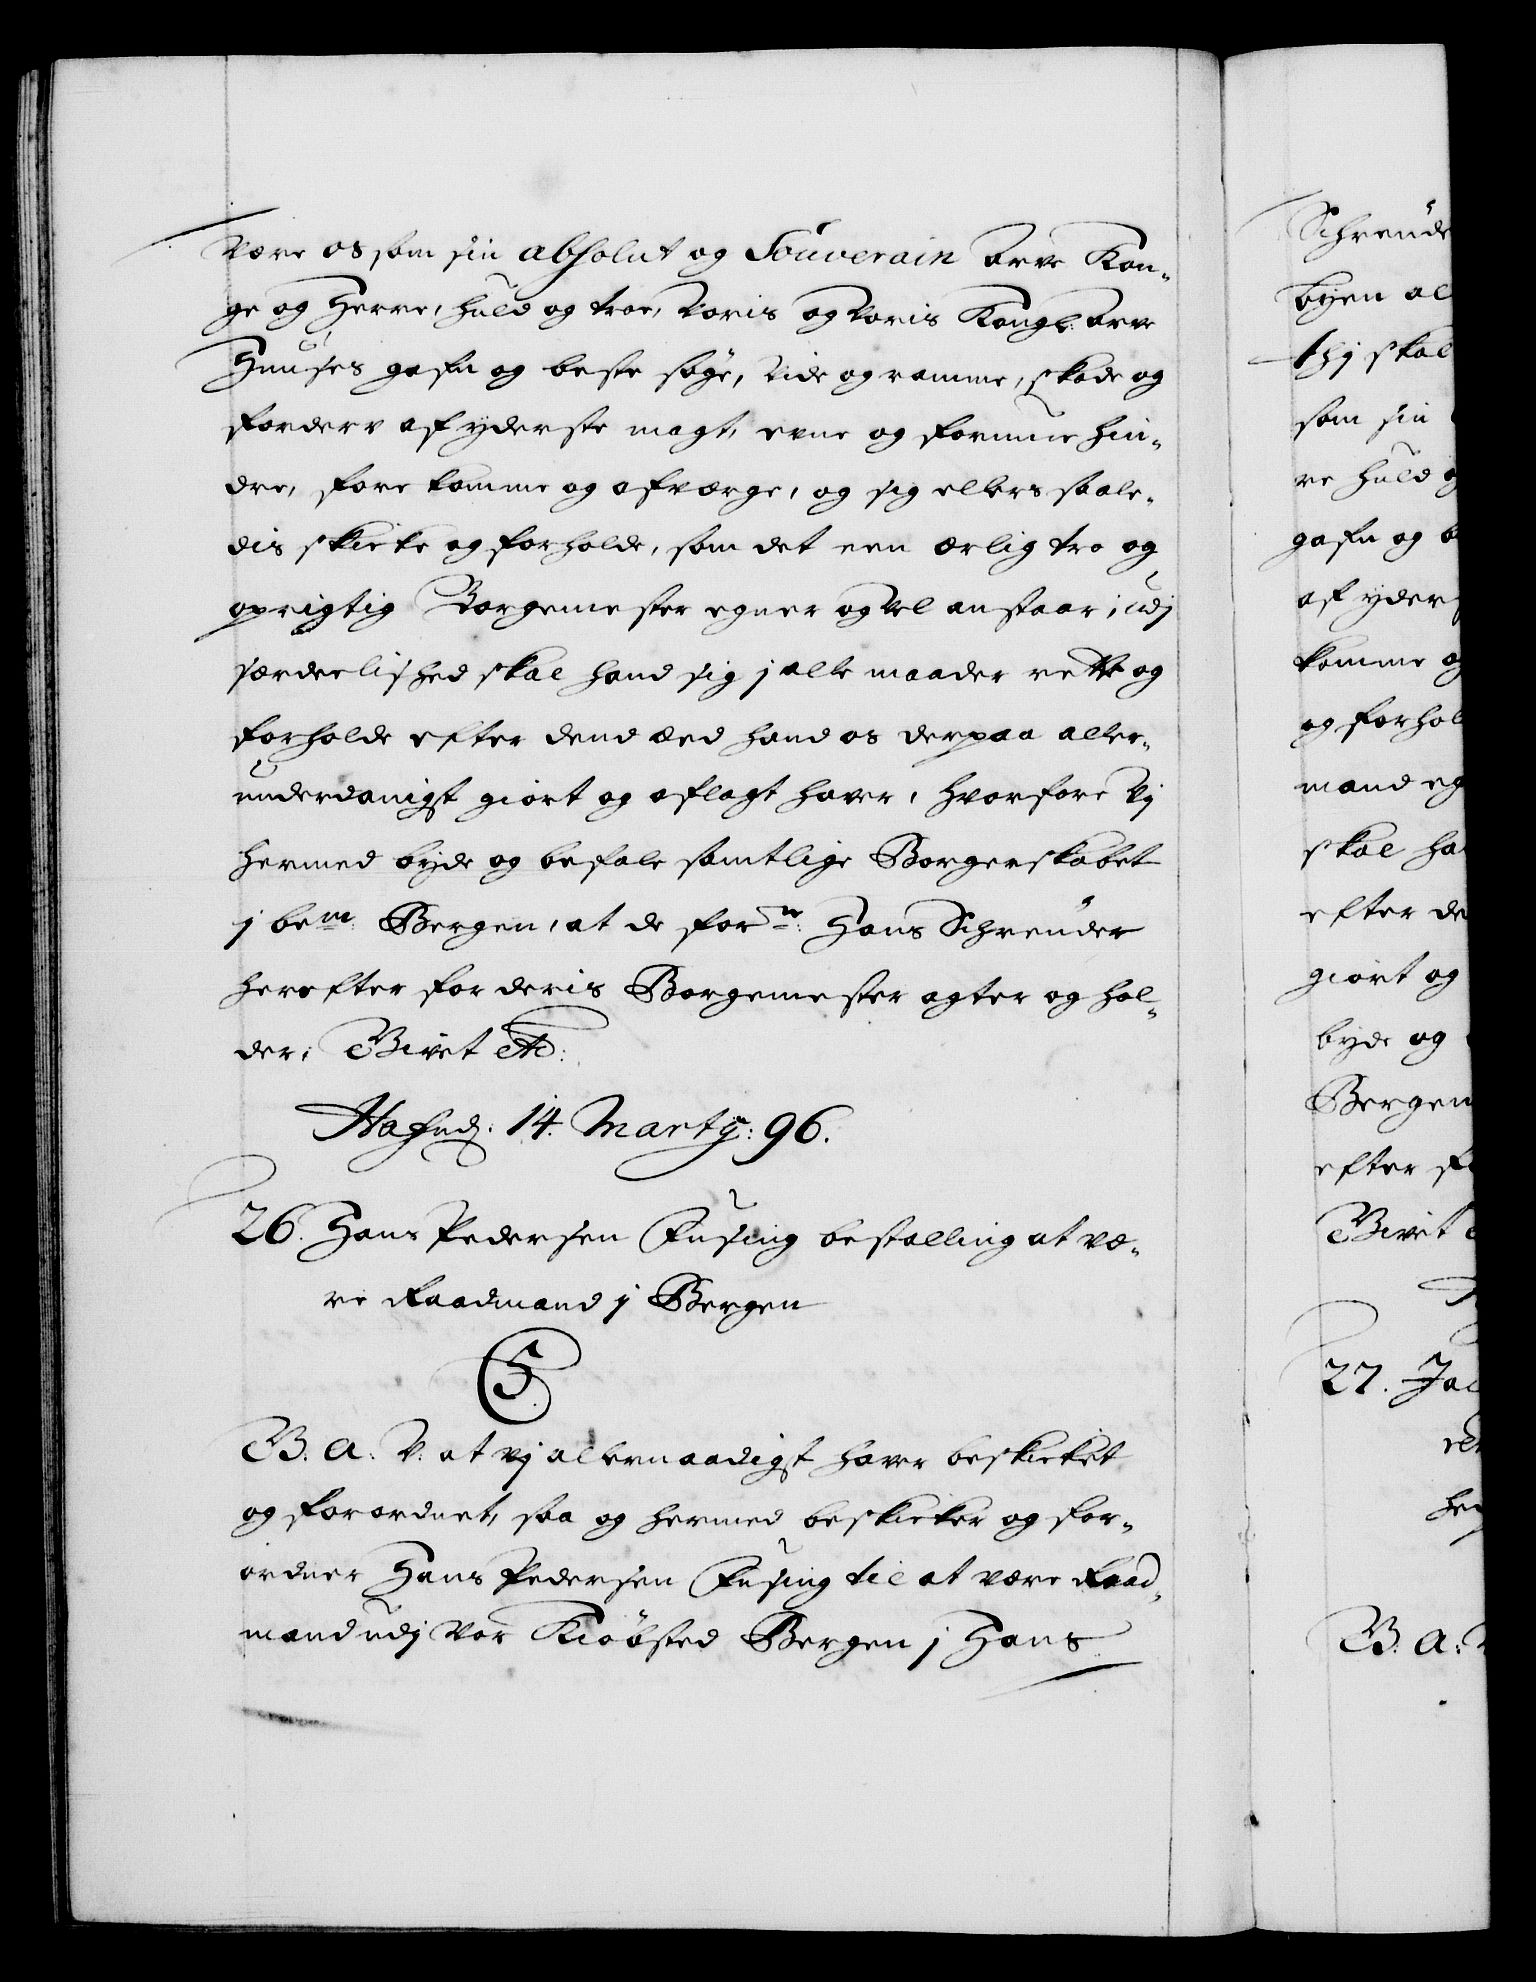 være os som sin absolut og Souverain Arve Kon-
ge og Herre, huld og troe, Voris og Voris Kongl: Arve
Huuses gafn og beste søge, Vide og ramme, skade og
forderv af yderste magt, evne og formue hin-
dre, fore komme og afverge, og sig ellers saale-
dis skicke og forholde, som det een ærlig tro og
oprigtig Borgemester egner og vel anstaar, udj
særdeelished skal hand sig j alle maader rette og
forholde efter dend æed hand os derpaa aller-
underdanigst giort og aflagt haver, hvorfore Vj
hermed byde og befale samtlige Borgerskabet
j bem: Bergen, at de forn: Hans Schreüder
herefter for deris Borgemester agter og hol-
der, Givet etc:
Hafnd: 14. Martij: 96.
26. Hans Pedersen Fusing bestalling at væ-
re Raadmand j Bergen
C5.
G. A. V: at vj allernaadigst haver beskicket
og forordnet, saa og hermed beskicker og for-
ordner Hans Pedersen Fusing til at være Raad-
mand udj Vor Kiøbsted Bergen j Hans
Schreüde
byen al
thj skal
som sin
re huld og
gafn og b
af yders
komme og
og forhol
mand eg
skal ha
efter de
giort og
byde og
Bergen
efter f
Givet
27. Jac
G. A. V